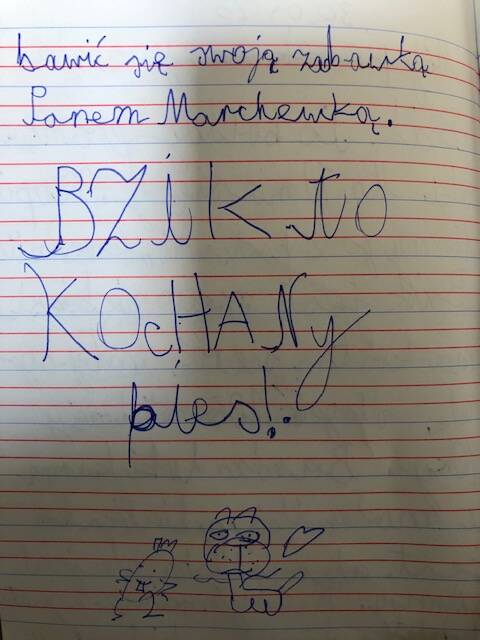 bawić się swoją zabawką
Panem Marchewką.
BZiK to
KOcHANy
pies!